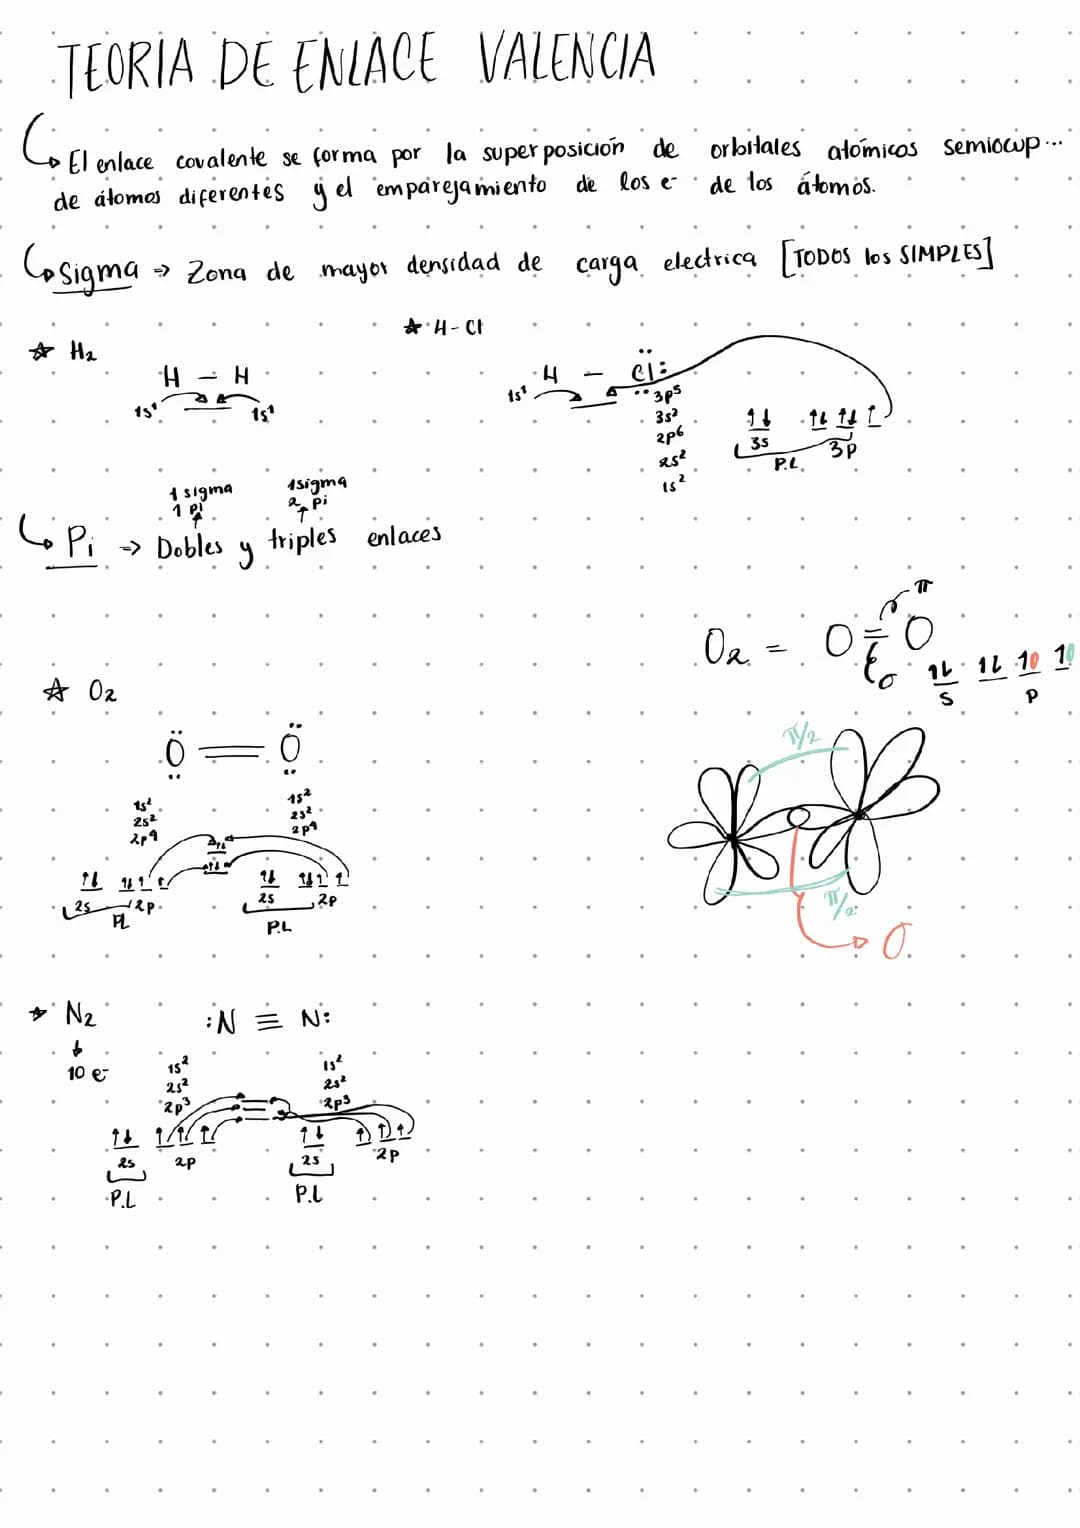 TEORIA DE ENLACE VALENCIA
El enlace covalente se forma por la superposición de orbitales atómicos semiocup...
de átomos diferentes y el emparejamiento de los e- de los átomos.
Sigma => Zona de mayor densidad de carga electrica [TODOS los SIMPLES]
☆ H2
☆ H-Cl
H - H
1s¹ 1s¹
H - Cl:
1s¹
3p⁵
3s²
2p⁶
2s²
1s²
3s 3p
P.L.
1 sigma
1 pi
1sigma
2 pi
Pi => Dobles y triples enlaces
O2 = O=O
π
σ
S P
☆ O2
Ö = Ö
1s²
2s²
2p⁴
1s²
2s²
2p⁴
2s 2p
PL
2s 2p
P.L
π/2
π/2
σ
☆ N2
10 e-
:N ≡ N:
1s²
2s²
2p³
1s²
2s²
2p³
2s 2p
P.L
2s 2p
P.L